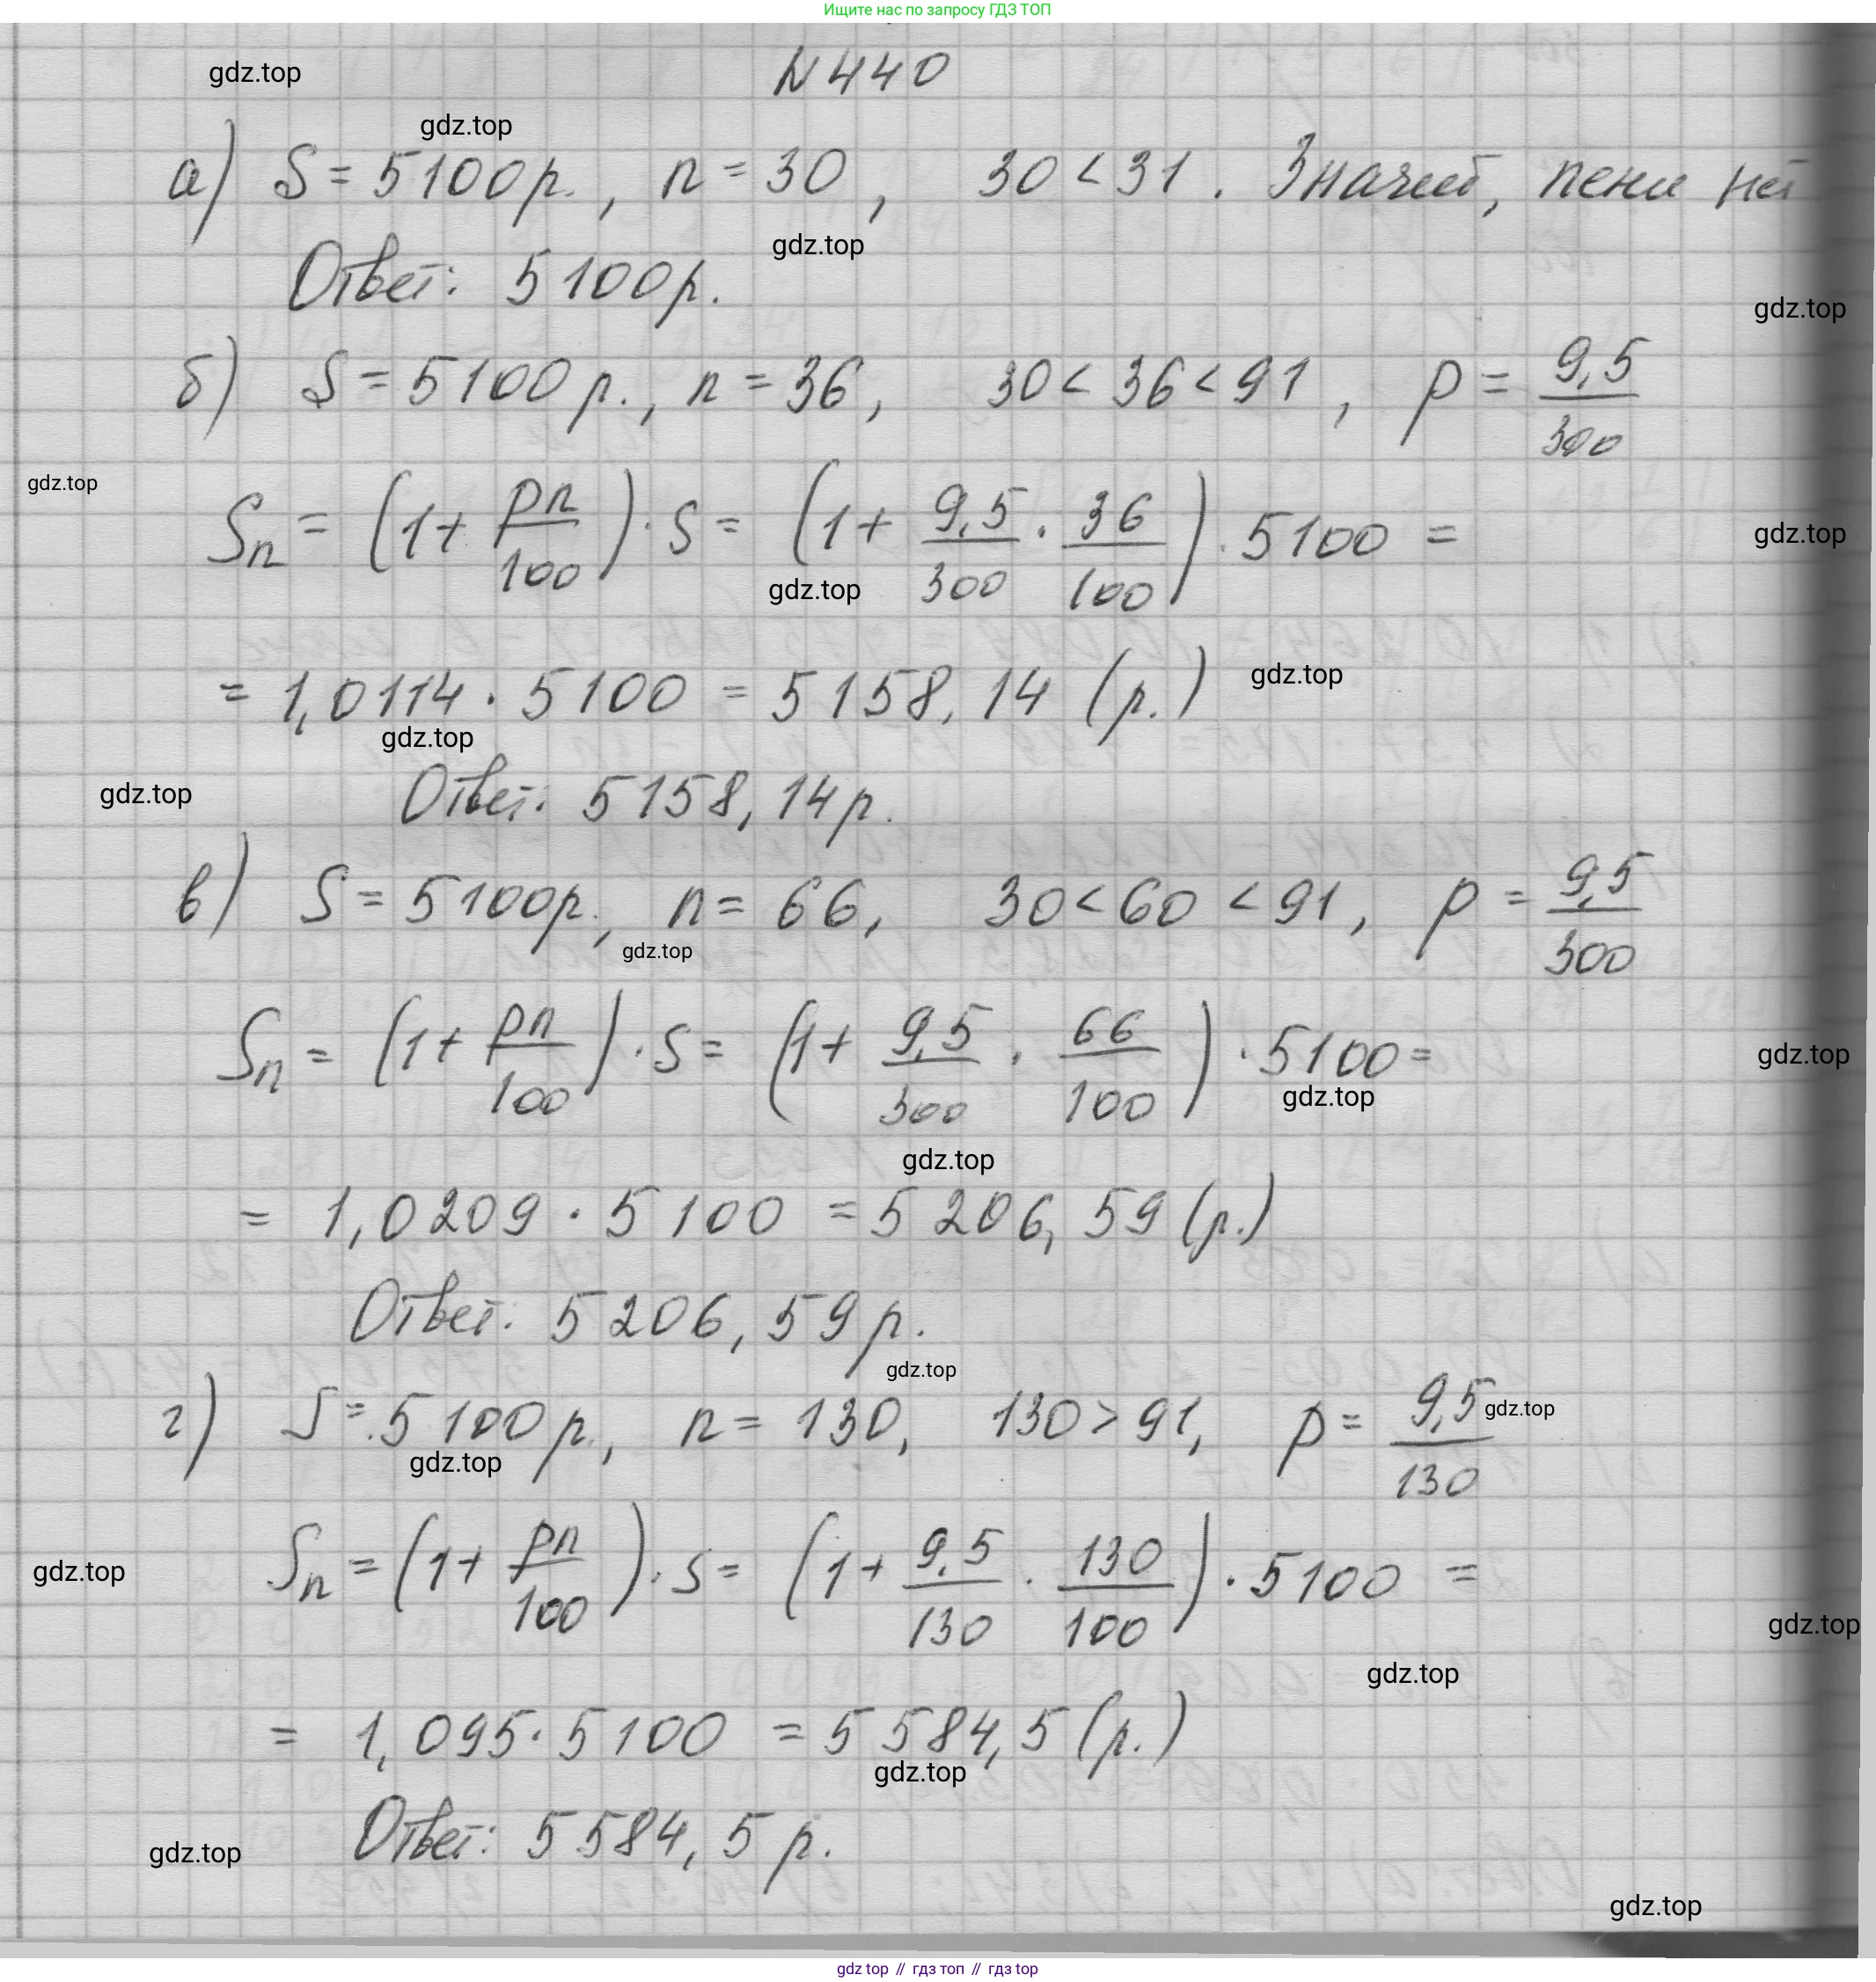 Ищите нас по запросу ГДЗ ТОП
N 440
gdz.top
gdz.top
а) S = 5100 р., n = 30, 30 < 31. Значит, пени нет
gdz.top
Ответ: 5100 р.
gdz.top
б) S = 5100 р., n = 36, 30 < 36 < 91, p = 9,5/300
gdz.top
Sn = (1 + pn/100) · S = (1 + 9,5/300 · 36/100) · 5100 =
gdz.top
gdz.top
= 1,0114 · 5100 = 5158,14 (р.)
gdz.top
gdz.top
gdz.top
Ответ: 5158,14 р.
в) S = 5100 р., n = 66, 30 < 60 < 91, p = 9,5/300
gdz.top
Sn = (1 + pn/100) · S = (1 + 9,5/300 · 66/100) · 5100 =
gdz.top
gdz.top
gdz.top
= 1,0209 · 5100 = 5206,59 (р.)
Ответ: 5206,59 р.
gdz.top
г) S = 5100 р., n = 130, 130 > 91, p = 9,5/130
gdz.top
gdz.top
Sn = (1 + pn/100) · S = (1 + 9,5/130 · 130/100) · 5100 =
gdz.top
gdz.top
gdz.top
= 1,095 · 5100 = 5584,5 (р.)
gdz.top
Ответ: 5584,5 р.
gdz.top
gdz.top
gdz top // гдз топ // гдз top